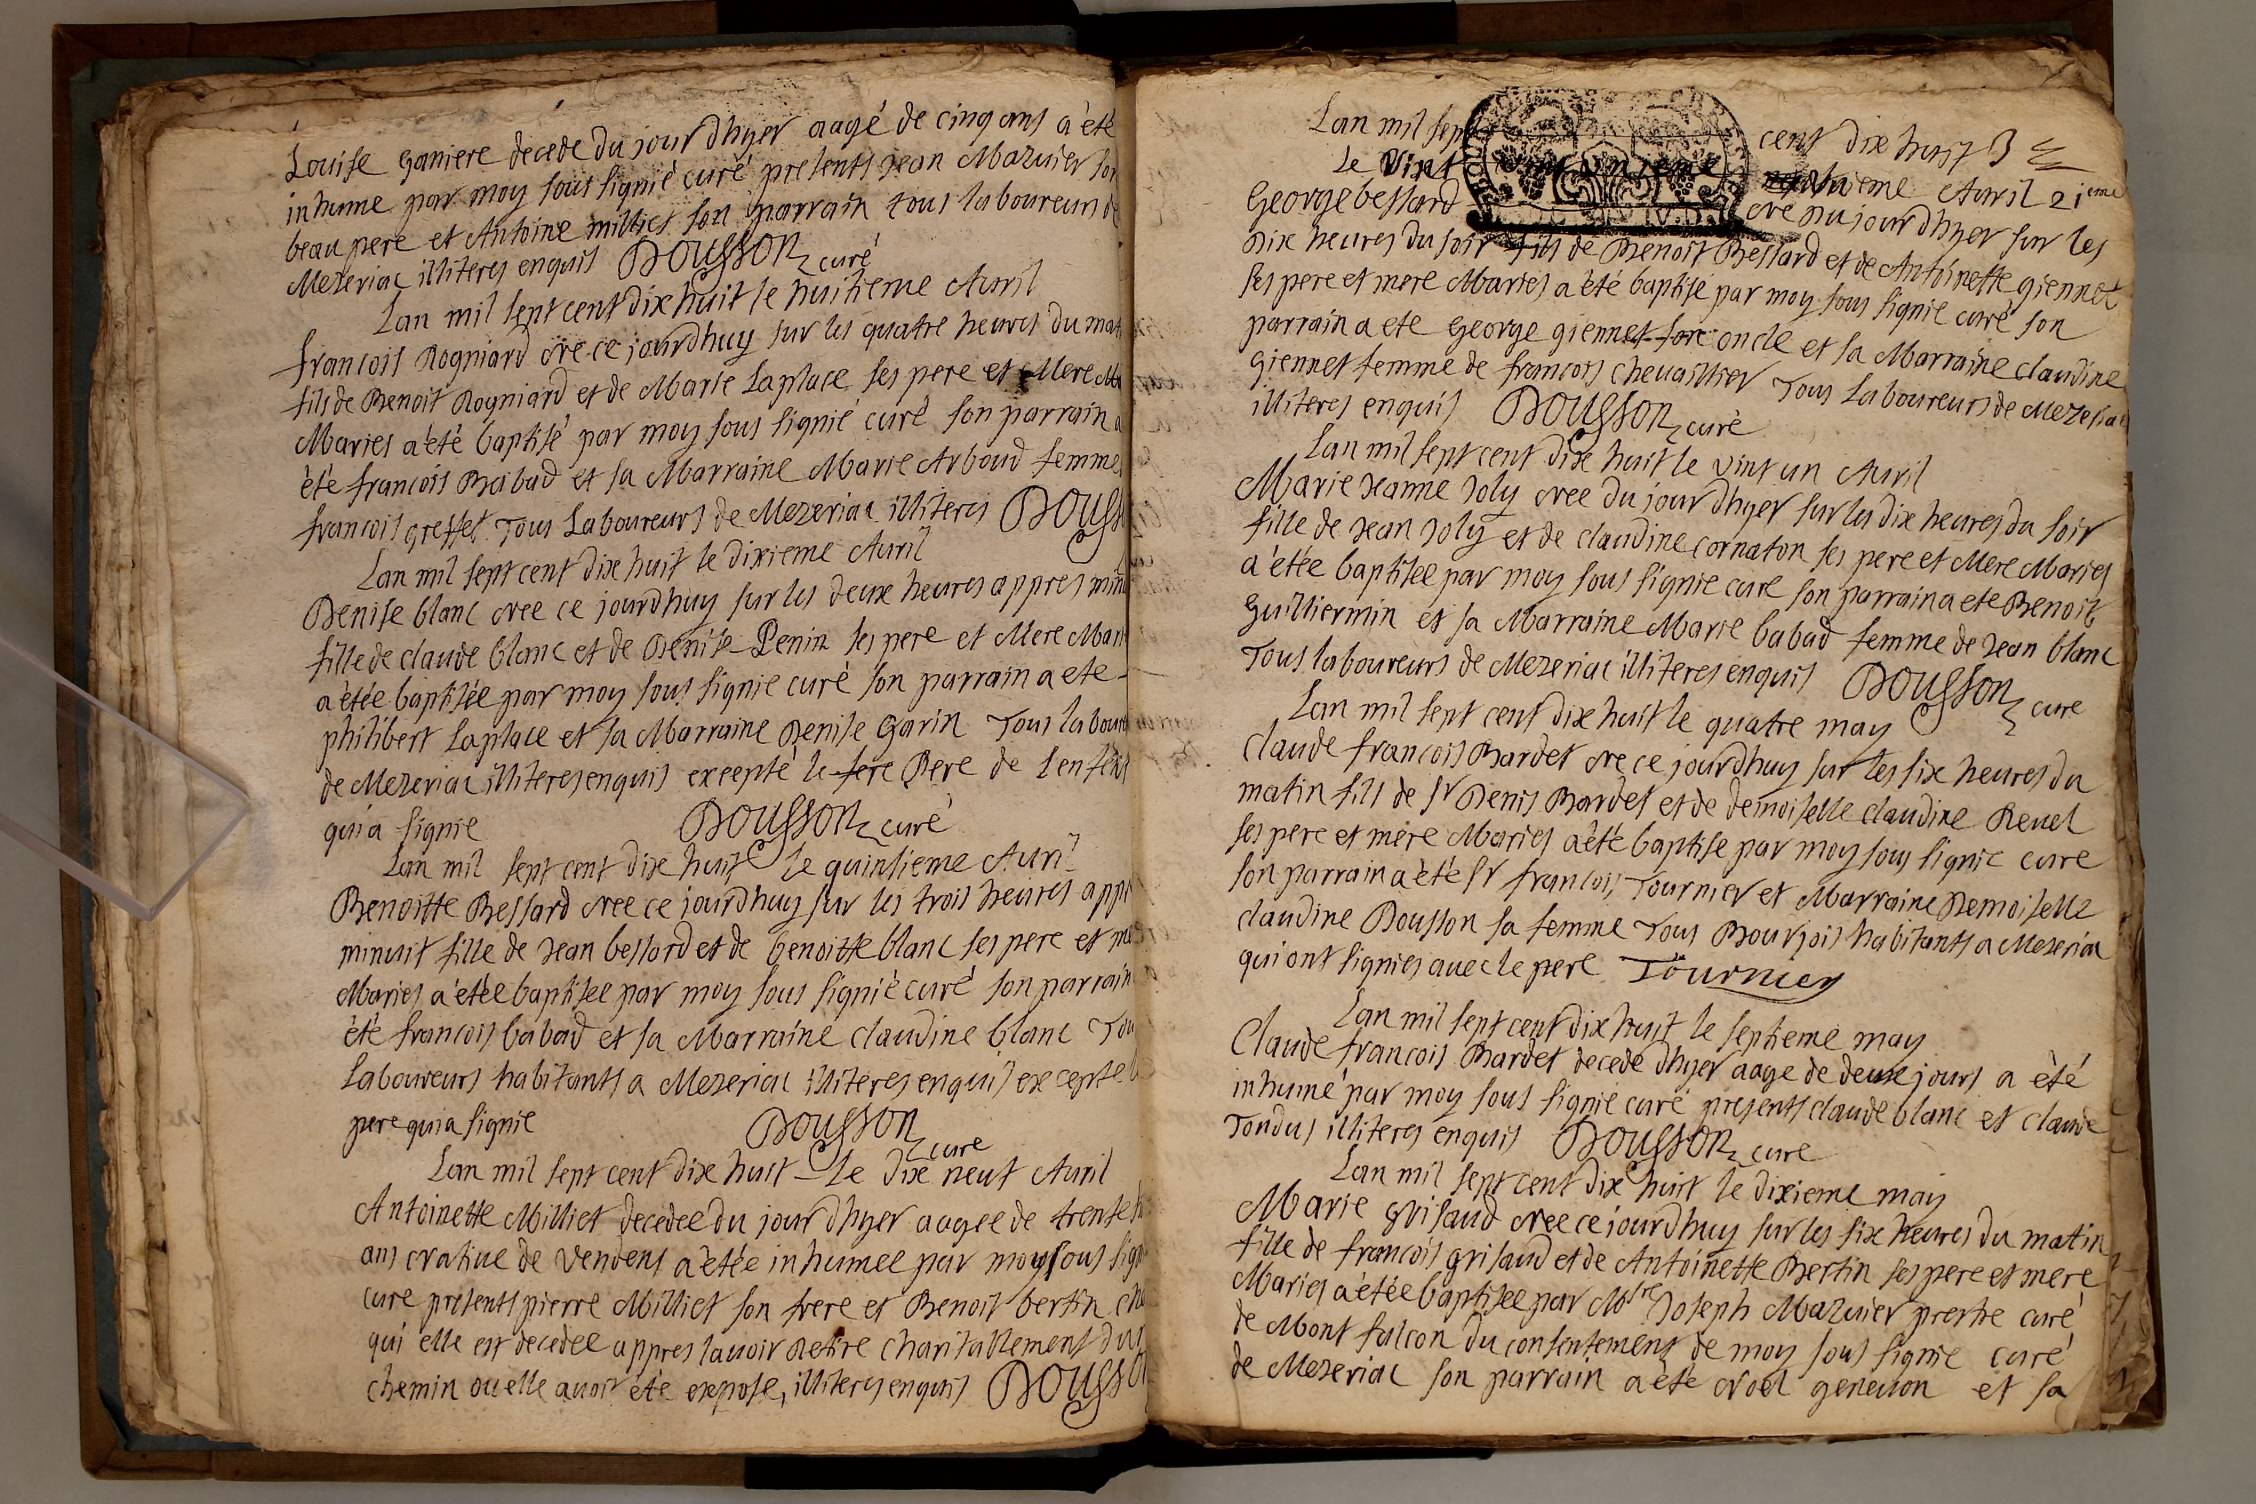 Louise Ganiere decede du jour dhyer aagé de cinq ans a èté
inhume par moy sous signié curé presents Jean Mazuier son
beau pere et Antoine milliet son parrain tous laboureurs de
Mezeriac illiteres enquis Dousson curé
Lan mil sept cent dix huit le huitieme Avril
francois Rogniard née ce jourdhuy sur les quatre heures du mat
fils de Benoit Rogniard et de Marie Laplace ses pere et Mere
Maries a èté baptisé par moy sous signié curé son parrain a
èté francois Babad et sa Marraine Marie Arboud femme
francois greffet Tous Laboureurs de Mezeriac illiteres Douss
Lan mil sept cent dix huit le dixieme Avril
Denise blanc nee ce jourdhuy sur les deux heures appres min
fille de claude blanc et de Denise Penin ses pere et Mere Mari
a ètée baptisée par moy sous signie curé son parrain a ete
philibert Laplace et sa Marraine Denise Garin Tous labour
de Mezeriac illiteres enquis excepté le fere Pere de lenfent
qui a signie Dousson curé
Lan mil sept cent dix huit le quinsieme Avril
Benoitte Bessard nee ce jourdhuy sur les trois heures appr
minuit fille de Jean bessard et de benoitte blanc ses pere et me
Maries a ètée baptisee par moy sous signié curé son parrain
èté francois babad et sa Marraine claudine blanc Tou
Laboureurs habitants a Mezeriac illiteres enquis excepte
pere qui a signie Dousson cure
Lan mil sept cent dix huit le dix neuf Avril
Antoinette Milliet decedee du jour dhyer aagee de trente
ans native de Vendens a ètée inhumee par moy sous sign
cure presents pierre Milliet son frere et Benoit bertin ché
qui elle est decedee appres lavoir Retire charitablement du
chemin ou elle avoit èté expose, illiteres enquis Dousso
Lan mil sept cent dix huit
le Vint Avril 21ieme
George bessard née du jour dhyer sur les
Dix heures du soir fils de Benoit Bessard et de Antoinette giennet
ses pere et mere Maries a èté baptise par moy sous signie curé son
parrain a ete George giennet son oncle et sa Marraine claudine
giennet femme de francois chevaillier Tous Laboureurs de Mezeria
illiteres enquis Dousson curé
Lan mil sept cent dix huit le vint un Avril
Marie Jeanne Joly nee du jour dhyer sur les dix heures du soir
fille de Jean Joly et de claudine cornaton ses pere et Mere Maries
a ètée baptisee par moy sous signie cure son parrain a ete Benoit
Guilliermin et sa Marraine Marie babad femme de Jean blanc
Tous laboureurs de Mezeriac illiteres enquis Dousson cure
Lan mil sept cent dix huit le quatre may
Claude francois Bardet ne ce jourdhuy sur les six heures du
matin fils de sr Denis Bardet et de demoiselle claudine Revel
ses pere et mère Maries a èté baptise par moy sous signie cure
son parrain a èté sr francois Tournier et Marraine Demoiselle
claudine Dousson sa femme Tous Bourjois habitants a Mezeriac
qui ont signies avec le pere Tournier
Lan mil sept cent dix huit le septieme may
Claude francois Bardet decedé dhyer aage de deux jours a èté
inhumé par moy sous signie curé presents claude blanc et claude
Tondus illiteres enquis Dousson cure
Lan mil sept cent dix huit le dixieme may
Marie Grisaud nee ce jourdhuy sur les six heures du matin
fille de francois grisaud et de Antoinette Bertin ses pere et mere
Maries a ètée baptisee par Mstre Joseph Mazuier prestre curé
de Mont falcon du consentement de moy sous signie curé
de Mezeriac son parrain a èté Noel et sa